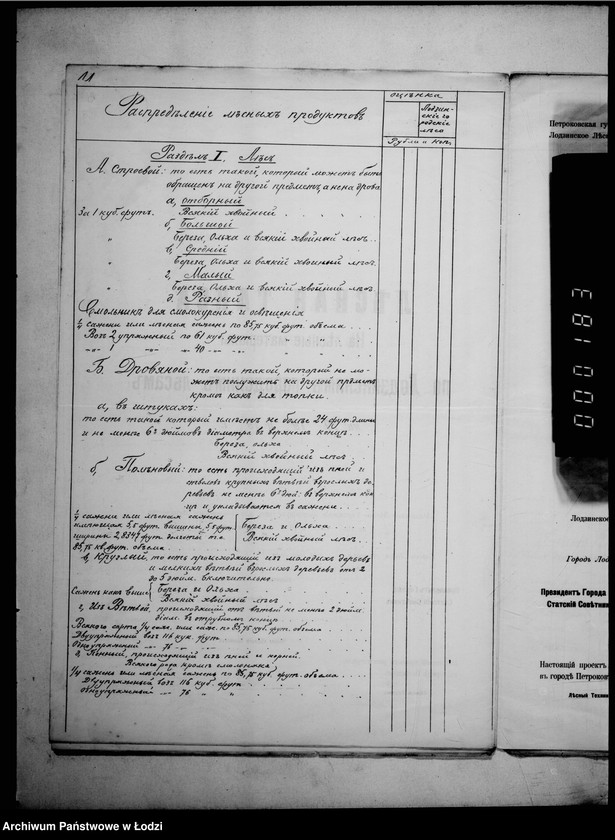 11
оцѣнка
Распредѣленіе лѣсныхъ продуктовъ
Лодзин-
скіе го-
родскіе
лѣса
Рубли и Коп.
Раздѣлъ I. Лѣсъ
А. Строевой: то есть такой, который можетъ быть
обращенъ на другой предметъ, а не на дрова
а, отборный
За 1 куб. футъ. Всякій хвойный
б, Большой
" Береза, Ольха и всякій хвойный лѣсъ.
в, Средній
" Береза, Ольха и всякій хвойный лѣсъ.
г, Малый
" Береза, Ольха и всякій хвойный лѣсъ
д, Разный
Смольникъ для смолокуренія и освѣщенія
1/4 сажени или лѣсная сажень по 85,75 куб. фут. объема
Возъ 2 упряжный по 61 куб. фут.
-"- 1 -"- -"- 40 -"- -"-
Б. Дровяной: то есть такой, который не мо-
жетъ послужить на другой предметъ
кромѣ какъ для топки.
а, въ штукахъ:
то есть такой который имѣетъ не болѣе 24 фут. длины
и не менѣе 6 дюймовъ діаметра въ верхнемъ концѣ
Береза, ольха
Всякій хвойный лѣсъ
б, Полѣновый: то есть происходящій изъ пней и
стволовъ крупныхъ вѣтвей взрослыхъ де-
ревьевъ не менѣе 6 дюй: въ верхнемъ кон-
цѣ и укладывается въ сажени.
1/4 сажени или лѣсная сажень
имѣющая 3,5 фут. вышины 3,5 фут. Береза и Ольха
ширины 2,8347 фут. долготы т.е. Всякій хвойный лѣсъ
85,75 кв. фут. объема
в, Круглый, то есть происходящій изъ молодыхъ деревьевъ
и мелкихъ вѣтвей взрослыхъ деревьевъ отъ 2
до 5 дюйм. включительно.
Сажень какъ выше Береза и Ольха
Всякій хвойный лѣсъ
г, Изъ Вѣтвей, происходящій отъ вѣтвей не менѣе 2 дюйм.
діам. въ отрубномъ концѣ
Всякаго сорта 1/4 саж. или саж. по 85,75 куб. фут. объема
Двуупряжный возъ 116 куб. фут.
Одноупряжный -"- 76 -"-
д, Пенный, происходящій изъ пней и корней.
Всякаго рода кромѣ смольняка
1/4 сажени или лѣсная сажень по 85,75 куб. фут. объема
Двуупряжный возъ 116 куб. фут.
Одноупряжный -"- 76 "
Петроковская гу
Лодзинское Лѣс
000183
Лодзинское
Городъ Лод
Президентъ Города
Статскій Совѣтник
Настоящій проектъ
въ городѣ Петроков
Лѣсной Технин
Archiwum Państwowe w Łodzi